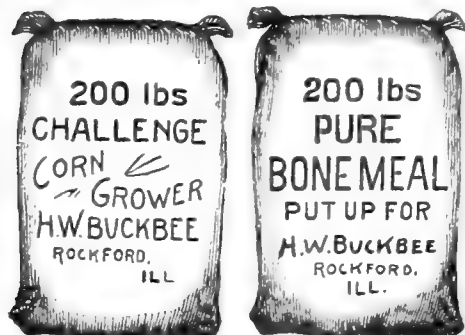 200 lbs
CHALLENGE
CORN
GROWER
H.W.BUCKBEE
ROCKFORD.
ILL
200 lbs
PURE
BONEMEAL
PUT UP FOR
H.W.BUCKBEE
ROCKFORD.
ILL.